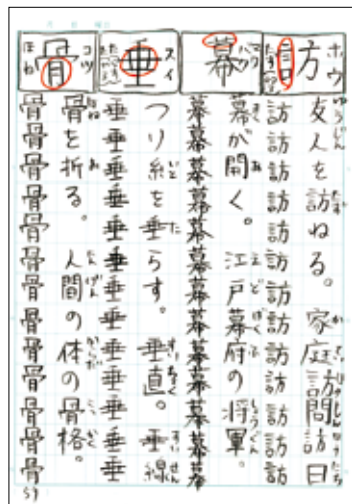 訪 ホウ
友人を訪ねる。家庭訪問訪日
訪訪訪訪訪訪訪訪訪訪訪訪訪
幕 マク バク
幕が開く。江戸幕府の将軍。
幕幕幕幕幕幕幕幕幕幕幕幕幕
垂 スイ
つり糸を垂らす。垂直。垂線
垂垂垂垂垂垂垂垂垂垂垂垂垂
骨 コツ ほね
骨を折る。人間の体の骨格。
骨骨骨骨骨骨骨骨骨骨骨骨骨